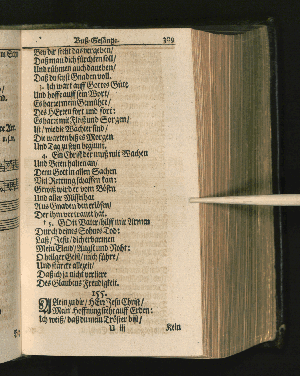 Buß-Gesänge. 329
Bey dir steht das vergeben/
Daß man dich fürchten soll/
Und rühmen auch daneben/
Daß du seyst Gnaden voll.
3. Ich wart auff Gottes Güt/
Und hoffe auff sein Wort/
Es harret mein Gemüthe/
Des HErren fort und fort:
Es harrt mit Fleiß und Sorgen/
Ist/ wie die Wächter sind/
Die warten biß es Morgen
Und Tag zu seyn beginnt.
4. Ein Christ der muß mit Wachen
Und Beten halten an/
Dem Gott in allen Sachen
Viel Rettung schaffen kan:
Gewiß wird er vom Bösen
Und aller Missethat
Aus Gnaden den erlösen/
Der ihm vertrauet hat.
5. GOtt Vater/ hilff mir Armen
Durch deines Sohnes Tod:
Laß/ Jesu/ dich erbarmen
Mein Elend/ Angst und Noht:
O heilger Geist/ mich führe/
Und stärcke allezeit/
Daß ich ja nicht verliere
Des Glaubens Freudigkeit.
155.
Allein zu dir/ HErr Jesu Christ/
Mein Hoffnung steht auff Erden:
Ich weiß/ daß du mein Tröster bist/
Kein